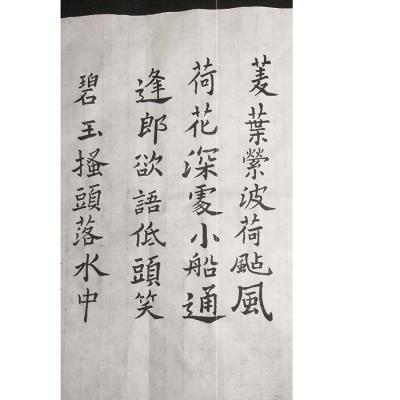 菱葉縈波荷颭風
荷花深處小船通
逢郎欲語低頭笑
碧玉搔頭落水中